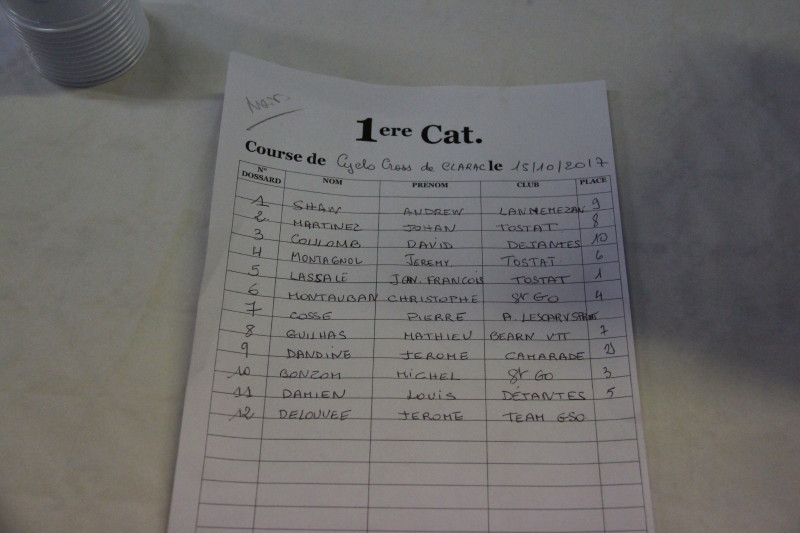 Noir.
1ere Cat.
Course de Cyclo Cross de CLARAC le 15/10/2017
N° DOSSARD NOM PRENOM CLUB PLACE
1 SHAW ANDREW LANNEMEZAN 9
2 MARTINEZ JOHAN TOSTAT 8
3 COULOMB DAVID DEJANTES 10
4 MONTAGNOL JEREMY TOSTAT 6
5 LASSALE JEAN FRANCOIS TOSTAT 1
6 MONTAUBAN CHRISTOPHE St GO 4
7 COSSE PIERRE A. LESCAR
8 GUILHAS MATHIEU BEARN VTT 7
9 DANDINE JEROME CAMARADE 2
10 BONZOM MICHEL St GO 3
11 DAMIEN LOUIS DÉJANTES 5
12 DELOUVEE JEROME TEAM GSO